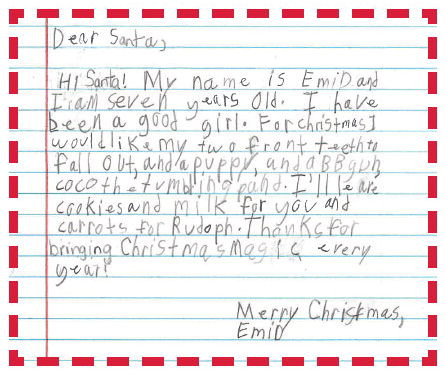 Dear Santa,
Hi Santa! My name is EmiD and
I iam seven years old. I have
been a good girl. For christmas I
would like my two front teeth to
fall out, and a puppy, and a BB gun,
coco the tumbling pand. I'll leave
cookies and milk for you and
carrots for Rudoph. Thanks for
bringing Christmas Magic every
year!
Merry Christmas,
EmiD